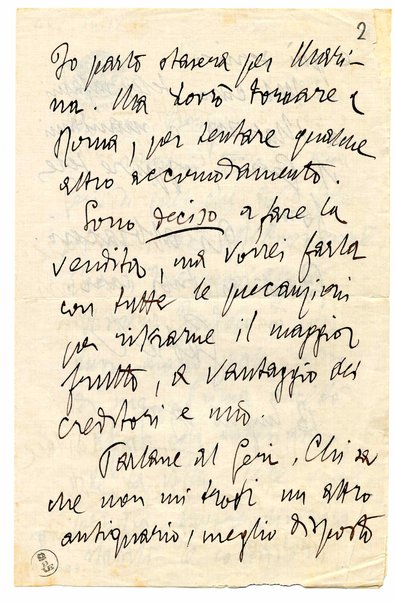 2
Io parto stasera per Mari-
na. Ma dovrò tornare a
Roma, per tentare qualche
altro accomodamento.
Sono deciso a fare la
vendita, ma vorrei farla
con tutte le precauzioni
per ritrarne il maggior
frutto, a vantaggio dei
creditori e mio.
Parlane al Geri. Chi sa
che non mi trovi un altro
antiquario, meglio disposto